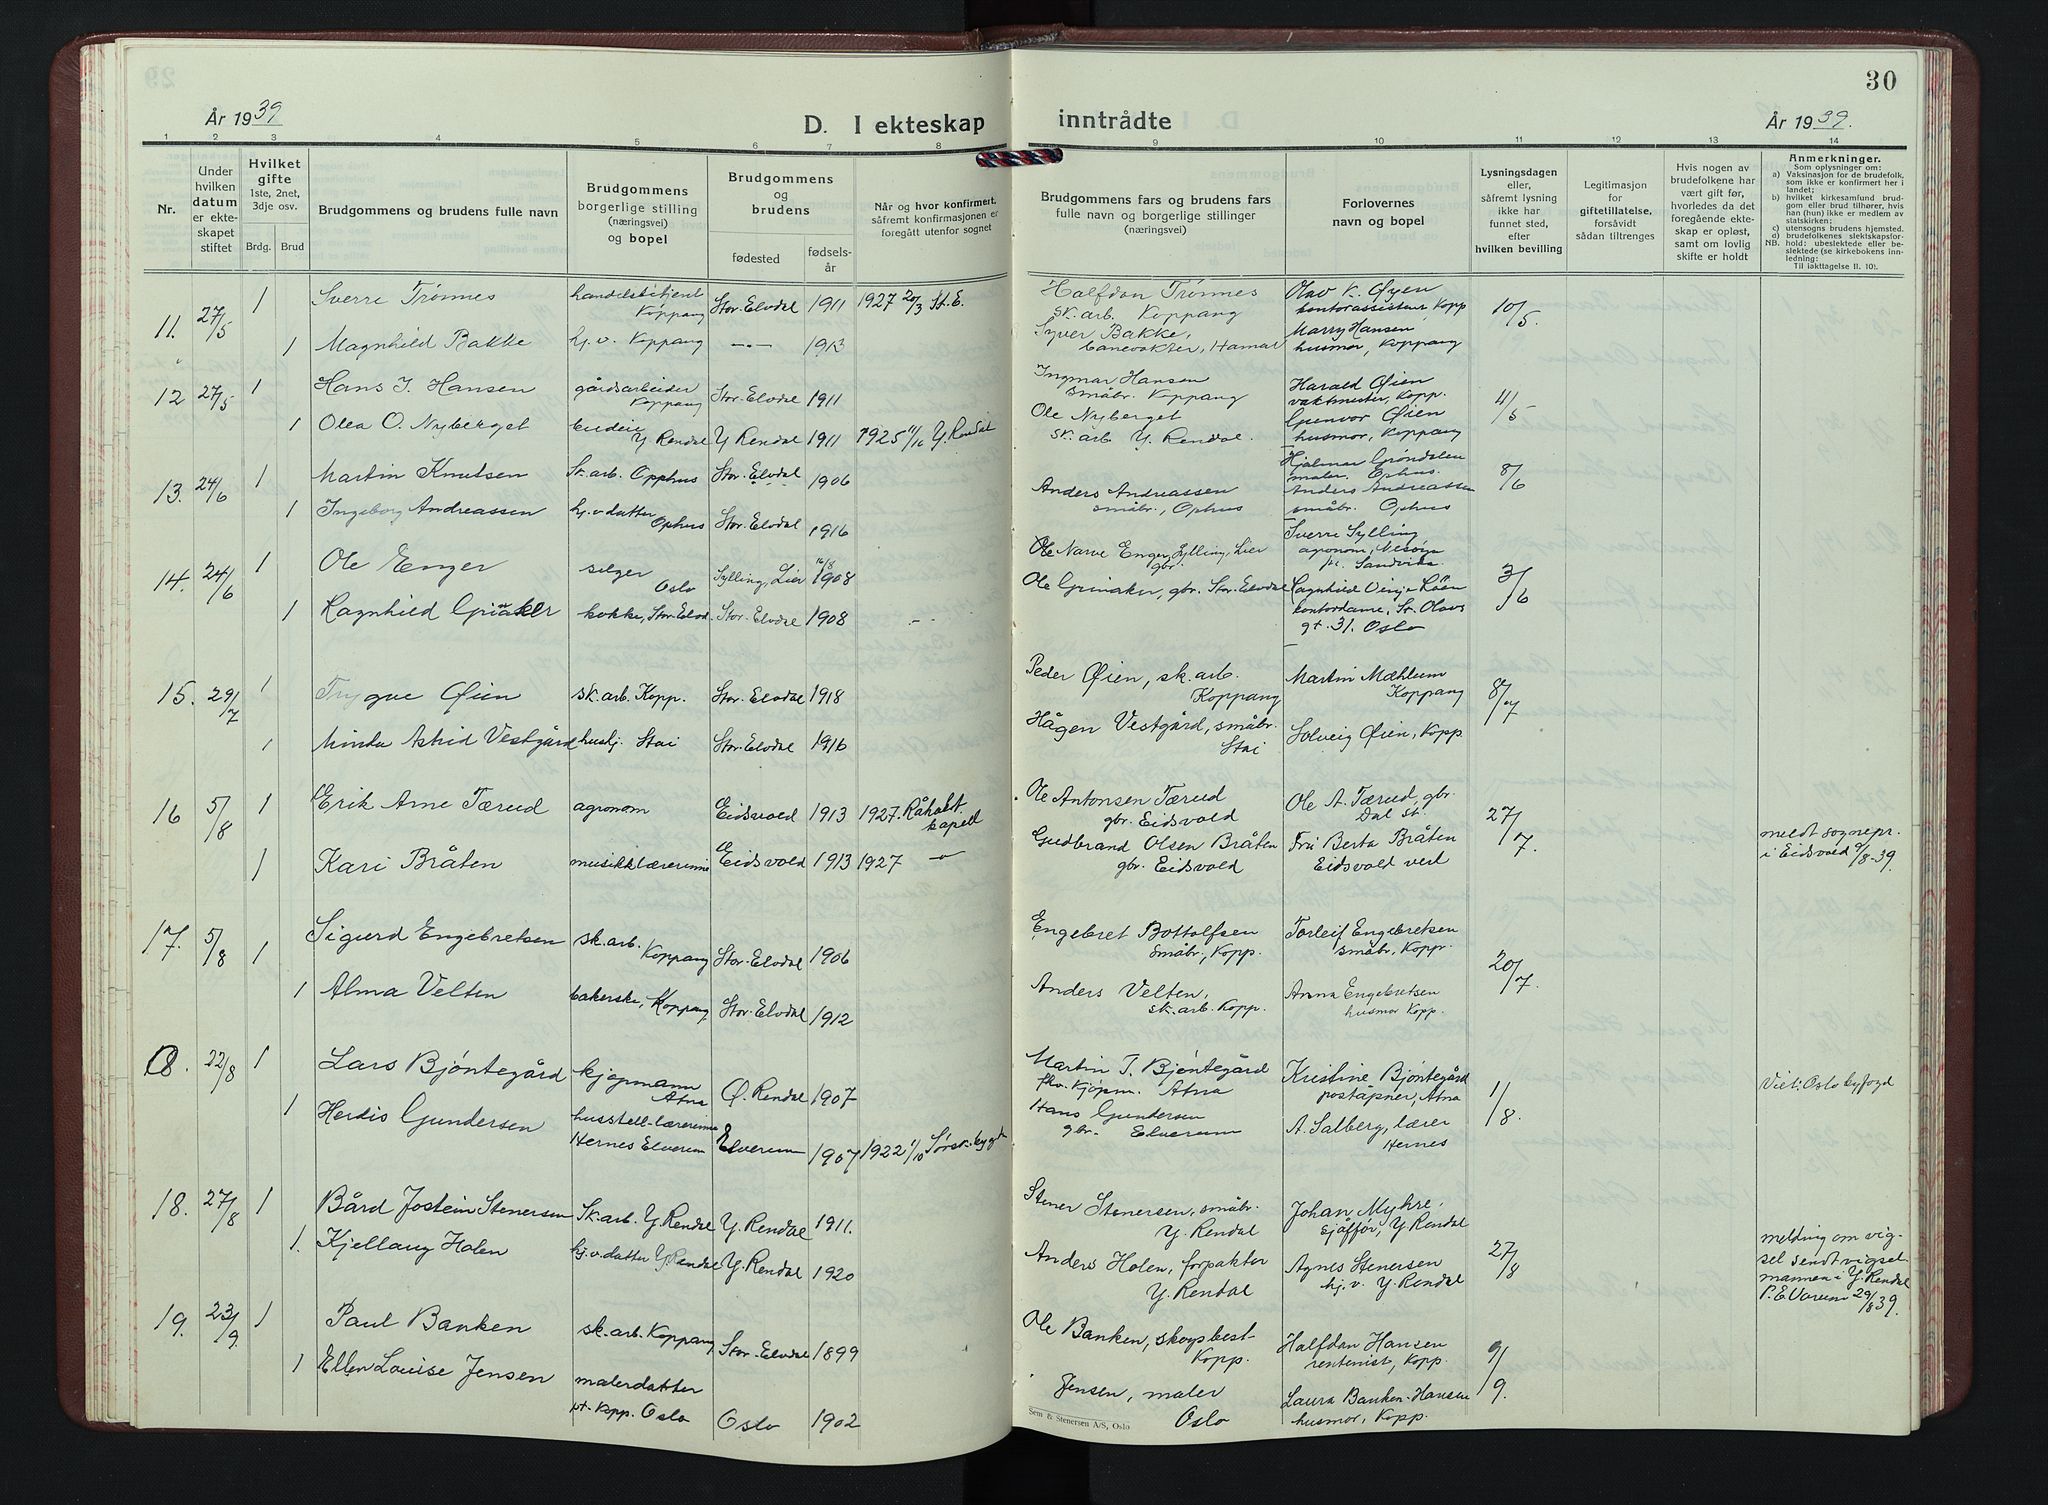 30
År 1939
D. I ekteskap inntrådte
År 1939.
1 2 3 4 5 6 7 8 9 10 11 12 13 14
Nr.
Under hvilken datum er ekteskapet stiftet
Hvilket gifte 1ste, 2net, 3dje osv.
Brdg. Brud
Brudgommens og brudens fulle navn
Brudgommens borgerlige stilling (næringsvei) og bopel
Brudgommens og brudens
fødested fødselsår
Når og hvor konfirmert, såfremt konfirmasjonen er foregått utenfor sognet
Brudgommens fars og brudens fars fulle navn og borgerlige stillinger (næringsvei)
Forlovernes navn og bopel
Lysningsdagen eller, såfremt lysning ikke har funnet sted, efter hvilken bevilling
Legitimasjon for giftetillatelse, forsåvidt sådan tiltrenges
Hvis nogen av brudefolkene har vært gift før, hvorledes da det foregående ekteskap er opløst, samt om lovlig skifte er holdt
Anmerkninger.
Som oplysninger om:
a) Vaksinasjon for de brudefolk, som ikke er konfirmert her i landet;
b) hvilket kirkesamfund brudgom eller brud tilhører, hvis han (hun) ikke er medlem av statskirken;
c) utensogns brudens hjemsted.
d) brudefolkenes slektskapsforhold: ubeslektede eller beslektede (se kirkebokens innledning:
NB. Til iakttagelse ll. 10).
11. 27/5 1 Sverre Trønnes handelsbetjent Koppang Stor-Elvdal 1911 1927 20/3 St. E. Halfdan Trønnes sk. arb. Koppang Olav K. Øyen kontorassistent Kopp 10/5.
1 Magnhild Bakke hj. v. Koppang -"- 1913 Syver Bakke, banevokter, Hamar Marry Hansen husmor, Koppang
12 27/5 1 Hans I. Hansen gårdsarbeider Koppang Stor-Elvdal 1911 Ingmar Hansen småbr. Koppang Harald Øien vaktmester, Kopp. 4/5
1 Olea O. Nyberget budeie Y. Rendal Y. Rendal 1911 1925 11/10 Y. Rendal Ole Nyberget sk. arb Y. Rendal. Gunvor Øien husmor, Koppang
13. 24/6 1 Martin Knutsen Sk. arb. Opphus Stor-Elvdal 1906 Hjalmar Grøndalen maler, Ophus. 8/6
1 Ingeborg Andreassen hj. v. datter Ophus Stor-Elvdal 1916 Anders Andreassen småbr., Ophus Anders Andreassen småbr. Ophus
14. 24/6 1 Ole Enger selger Oslo Sylling, Lier 16/8 1908 Ole Narve Enger, Sylling, Lier gbr. Sverre Sylling agronom, Nesøya pr. Sandvika 3/6
1 Ragnhild kokke, Stor-Elvd. Stor-Elvdal 1908 -"- Ole gbr. Stor-Elvdal Ragnhild kontordame, St. Olavs gt. 31. Oslo
15. 29/7 1 Trygve Øien sk. arb. Kopp. Stor-Elvdal 1918 Peder Øien, sk. arb. Koppang Martin Mæhlum Koppang 8/7
1 Minda Astrid Vestgård hushj. Stai Stor-Elvdal 1916 Hågen Vestgård, småbr. Stai Solveig Øien, Kopp
16 5/8 1 Erik Arne Tærud agronom Eidsvold 1913 1927. Råholt kapell Ole Antonsen Tærud gbr. Eidsvold Ole A. Tærud, gbr. Dal st. 27/7.
1 Kari Bråten musikklærerinne Eidsvold 1913 1927 -"- Gudbrand Olsen Bråten gbr. Eidsvold Fru Berta Bråten Eidsvold verk meldt sognepr. i Eidsvold 9/8-39
17. 5/8 1 Sigurd Engebretsen sk. arb. Koppang Stor-Elvdal 1906 Engebret Bottolfsen småbr., Kopp. Torleif Engebretsen småbr, Kopp. 20/7.
1 Alma Velten bakerske, Koppang Stor-Elvdal 1912 Anders Velten, sk. arb. Kopp. Anna Engebretsen husmor Kopp.
22/8 1 Lars Bjøntegård kjøpmann Atna Ø. Rendal 1907 Martin T. Bjøntegård fhv. kjøpm. Atna Kristine Bjøntegård poståpner, Atna 1/8. Viet: Oslo byfogd
1 Herdis Gundersen husstell-lærerinne Hernes Elverum Elverum 1907 1922 1/10 Sørsk-bygda Hans Gundersen gbr. Elverum A. Salberg, lærer Hernes
18. 27/8 1 Bård Jostein Stenersen Sk. arb. Y. Rendal Y. Rendal 1911. Stener Stenersen, småbr. Y. Rendal Johan Myhre, sjåfør, Y. Rendal 27/8
1. Kjellaug Holen hj. v. datter Y. Rendal Y. Rendal 1920 Anders Holen, forpakter Y. Rendal Agnes Stenersen hj. v. Y. Rendal melding om vigsel sendt vigselmannen i Y. Rendal 29/8 39.
19. 23/9. 1 Paul Banken sk. arb. Koppang Stor-Elvdal 1899 Ole Banken, skogsbest- Kopp. Halfdan Hansen rentenist, Kopp. 9/9.
1 Ellen Louise Jensen malerdatter pt. Kopp. Oslo Oslo 1902 Jensen, maler Oslo Laura Banken-Hansen husmor, Kopp.
Sem & Stenersen A/S, Oslo